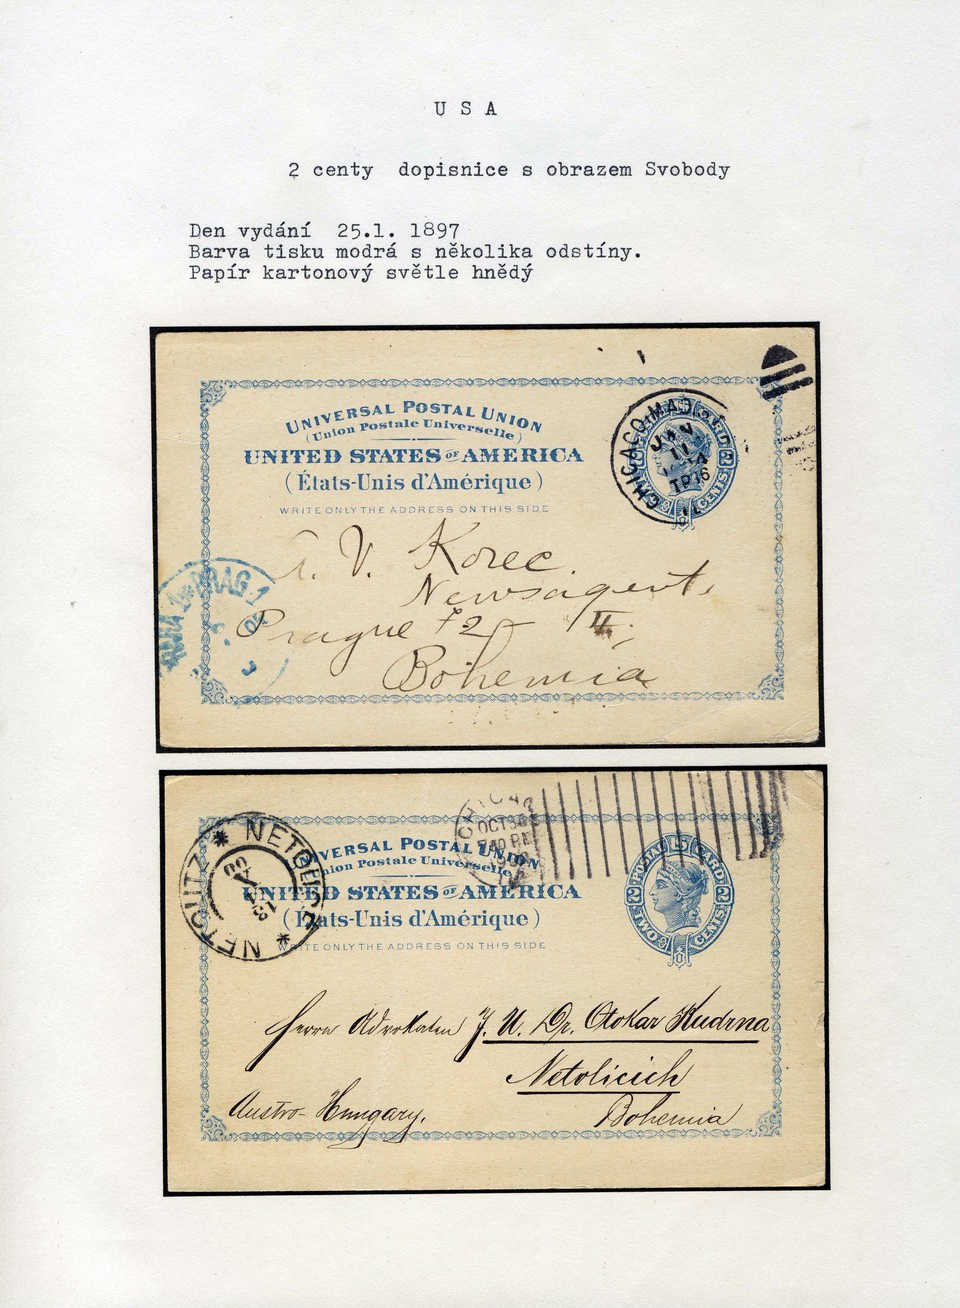 U S A
2 centy dopisnice s obrazem Svobody
Den vydání 25.1. 1897
Barva tisku modrá s několika odstíny.
Papír kartonový světle hnědý
UNIVERSAL POSTAL UNION
(Union Postale Universelle)
UNITED STATES OF AMERICA
(États-Unis d'Amérique)
WRITE ONLY THE ADDRESS ON THIS SIDE
CHICAGO MAD
JAN
11
CARD
CENTS
A. V. Korec
Newsagent,
Prague 72 II,
Bohemia
PRAG 1
CHICAG
OCT 30
NETOLICE
NETOLITZ
13
X
00
VERSAL POSTAL UNION
nion Postale Universelle
UNITED STATES OF AMERICA
(États-Unis d'Amérique)
WRITE ONLY THE ADDRESS ON THIS SIDE
POSTAL CARD
U S
2 2
TWO CENTS
Herrn Advokaten J. U. Dr. Otokar Kudrna
Netolicich
Austro-Hungary.
Bohemia